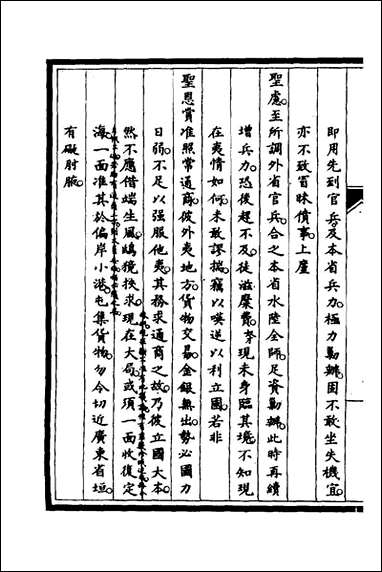 即用先到官兵及本省兵力極力勦辦固不敢坐失機宜
亦不致冒昧僨事上廑
聖慮至所調外省官兵合之本省水陸全師足資勦辦此時再續
增兵力恐後趕不及徒滋糜費 現未身臨其境不知現
在夷情如何未敢謬揣竊以𠸄逆以利立國若非
聖恩賞准照常通商彼外夷地方貨物交易金銀無出勢必國力
日弱不足以強服他夷其務求通商之故乃彼立國大本
然不應借端生風鴟獍挾求現在大局或須一面收復定
海一面准其於偏岸小港屯集貨物勿令切近廣東省垣
有礙肘腋